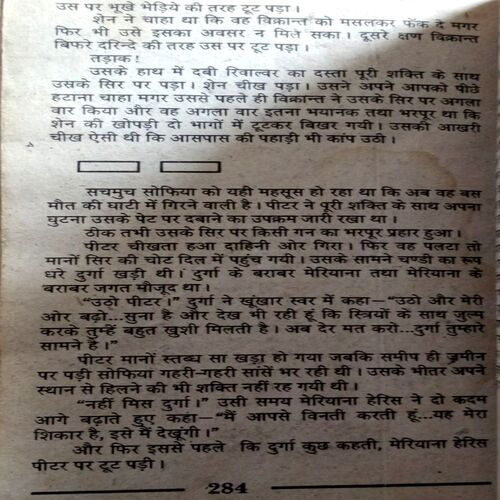 उस पर भूखे भेड़िये की तरह टूट पड़ा।
शेन ने चाहा था कि वह विक्रान्त को मसलकर फेंक दे मगर
फिर भी उसे इसका अवसर न मिल सका। दूसरे क्षण विक्रान्त
बिफरे दरिन्दे की तरह उस पर टूट पड़ा।
तड़ाक!
उसके हाथ में दबी रिवाल्वर का दस्ता पूरी शक्ति के साथ
उसके सिर पर पड़ा। शेन चीख पड़ा। उसने अपने आपको पीछे
हटाना चाहा मगर उससे पहले ही विक्रान्त ने उसके सिर पर अगला
वार किया और वह अगला वार इतना भयानक तथा भरपूर था कि
शेन की खोपड़ी दो भागों में टूटकर बिखर गयी। उसकी आखरी
चीख ऐसी थी कि आसपास की पहाड़ी भी कांप उठी।
सचमुच सोफिया को यही महसूस हो रहा था कि अब वह बस
मौत की घाटी में गिरने वाली है। पीटर ने पूरी शक्ति के साथ अपना
घुटना उसके पेट पर दबाने का उपक्रम जारी रखा था।
ठीक तभी उसके सिर पर किसी गन का भरपूर प्रहार हुआ।
पीटर चीखता हुआ दाहिनी ओर गिरा। फिर वह पलटा तो
मानों सिर की चोट दिल में पहुंच गयी। उसके सामने चण्डी का रूप
धरे दुर्गा खड़ी थी। दुर्गा के बराबर मेरियाना तथा मेरियाना के
बराबर जगत मौजूद था।
“उठो पीटर।” दुर्गा ने खूंखार स्वर में कहा—“उठो और मेरी
ओर बढ़ो...सुना है और देख भी रही हूं कि स्त्रियों के साथ जुल्म
करके तुम्हें बहुत खुशी मिलती है। अब देर मत करो...दुर्गा तुम्हारे
सामने है।”
पीटर मानों स्तब्ध सा खड़ा हो गया जबकि समीप ही ज़मीन
पर पड़ी सोफिया गहरी-गहरी सांसें भर रही थी। उसके भीतर अपने
स्थान से हिलने की भी शक्ति नहीं रह गयी थी।
“नहीं मिस दुर्गा।” उसी समय मेरियाना हेरिस ने दो कदम
आगे बढ़ाते हुए कहा—“मैं आपसे विनती करती हूं...यह मेरा
शिकार है, इसे मैं देखूंगी।”
और फिर इससे पहले कि दुर्गा कुछ कहती, मेरियाना हेरिस
पीटर पर टूट पड़ी।
284